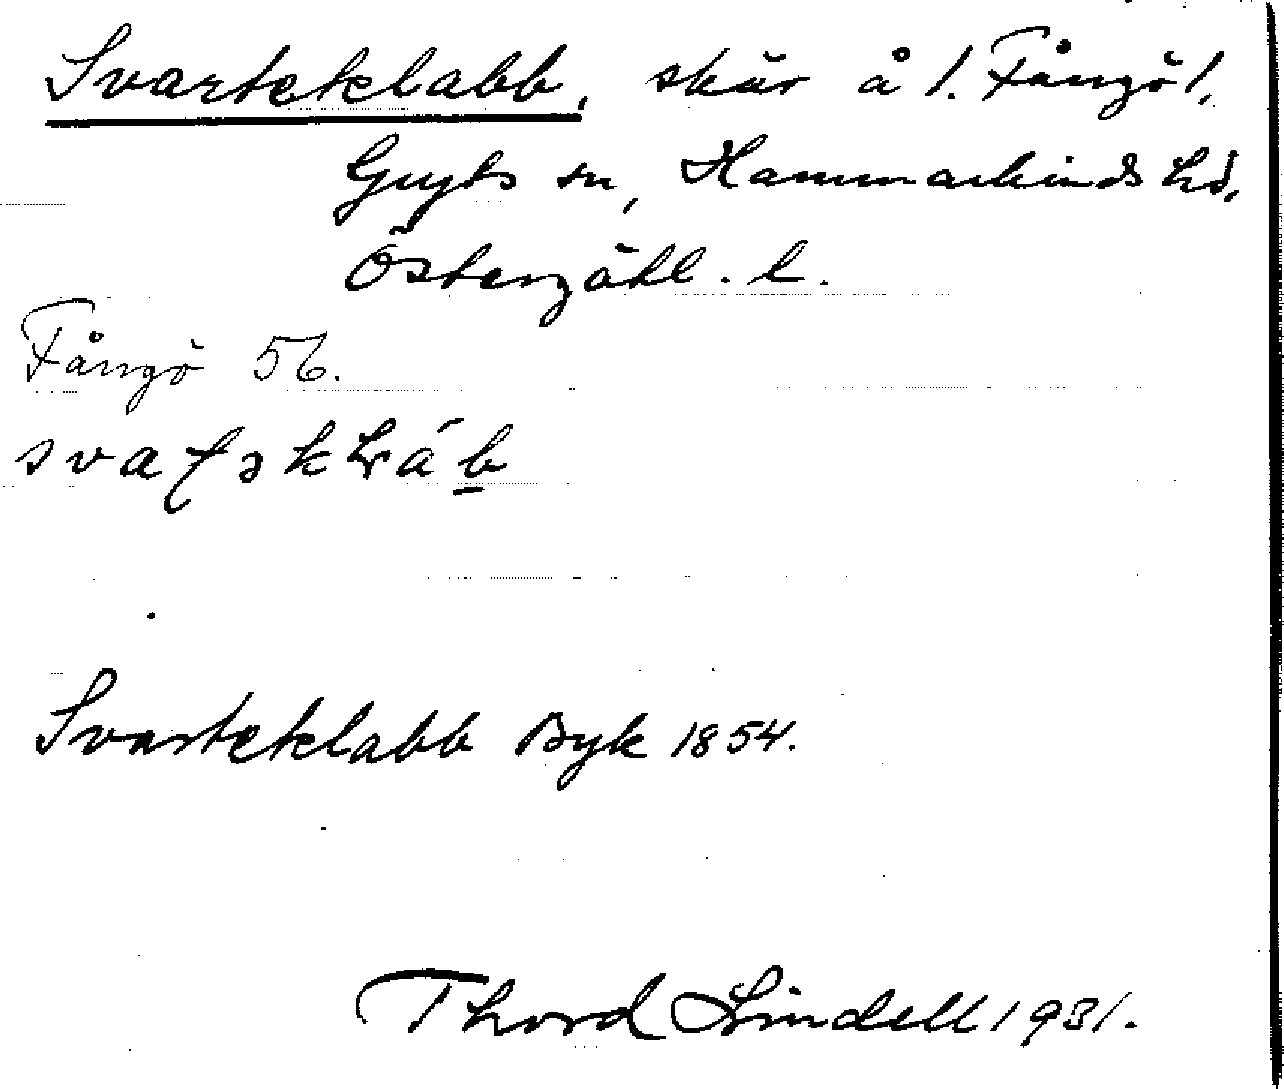 Svarteklabb, skär å l. Fångö l,
Gryts sn, Hammarkinds hd,
Östergötl. l.
Fångö 56.
Svarteklabb Byk 1854.
Thord Lindell 1931.